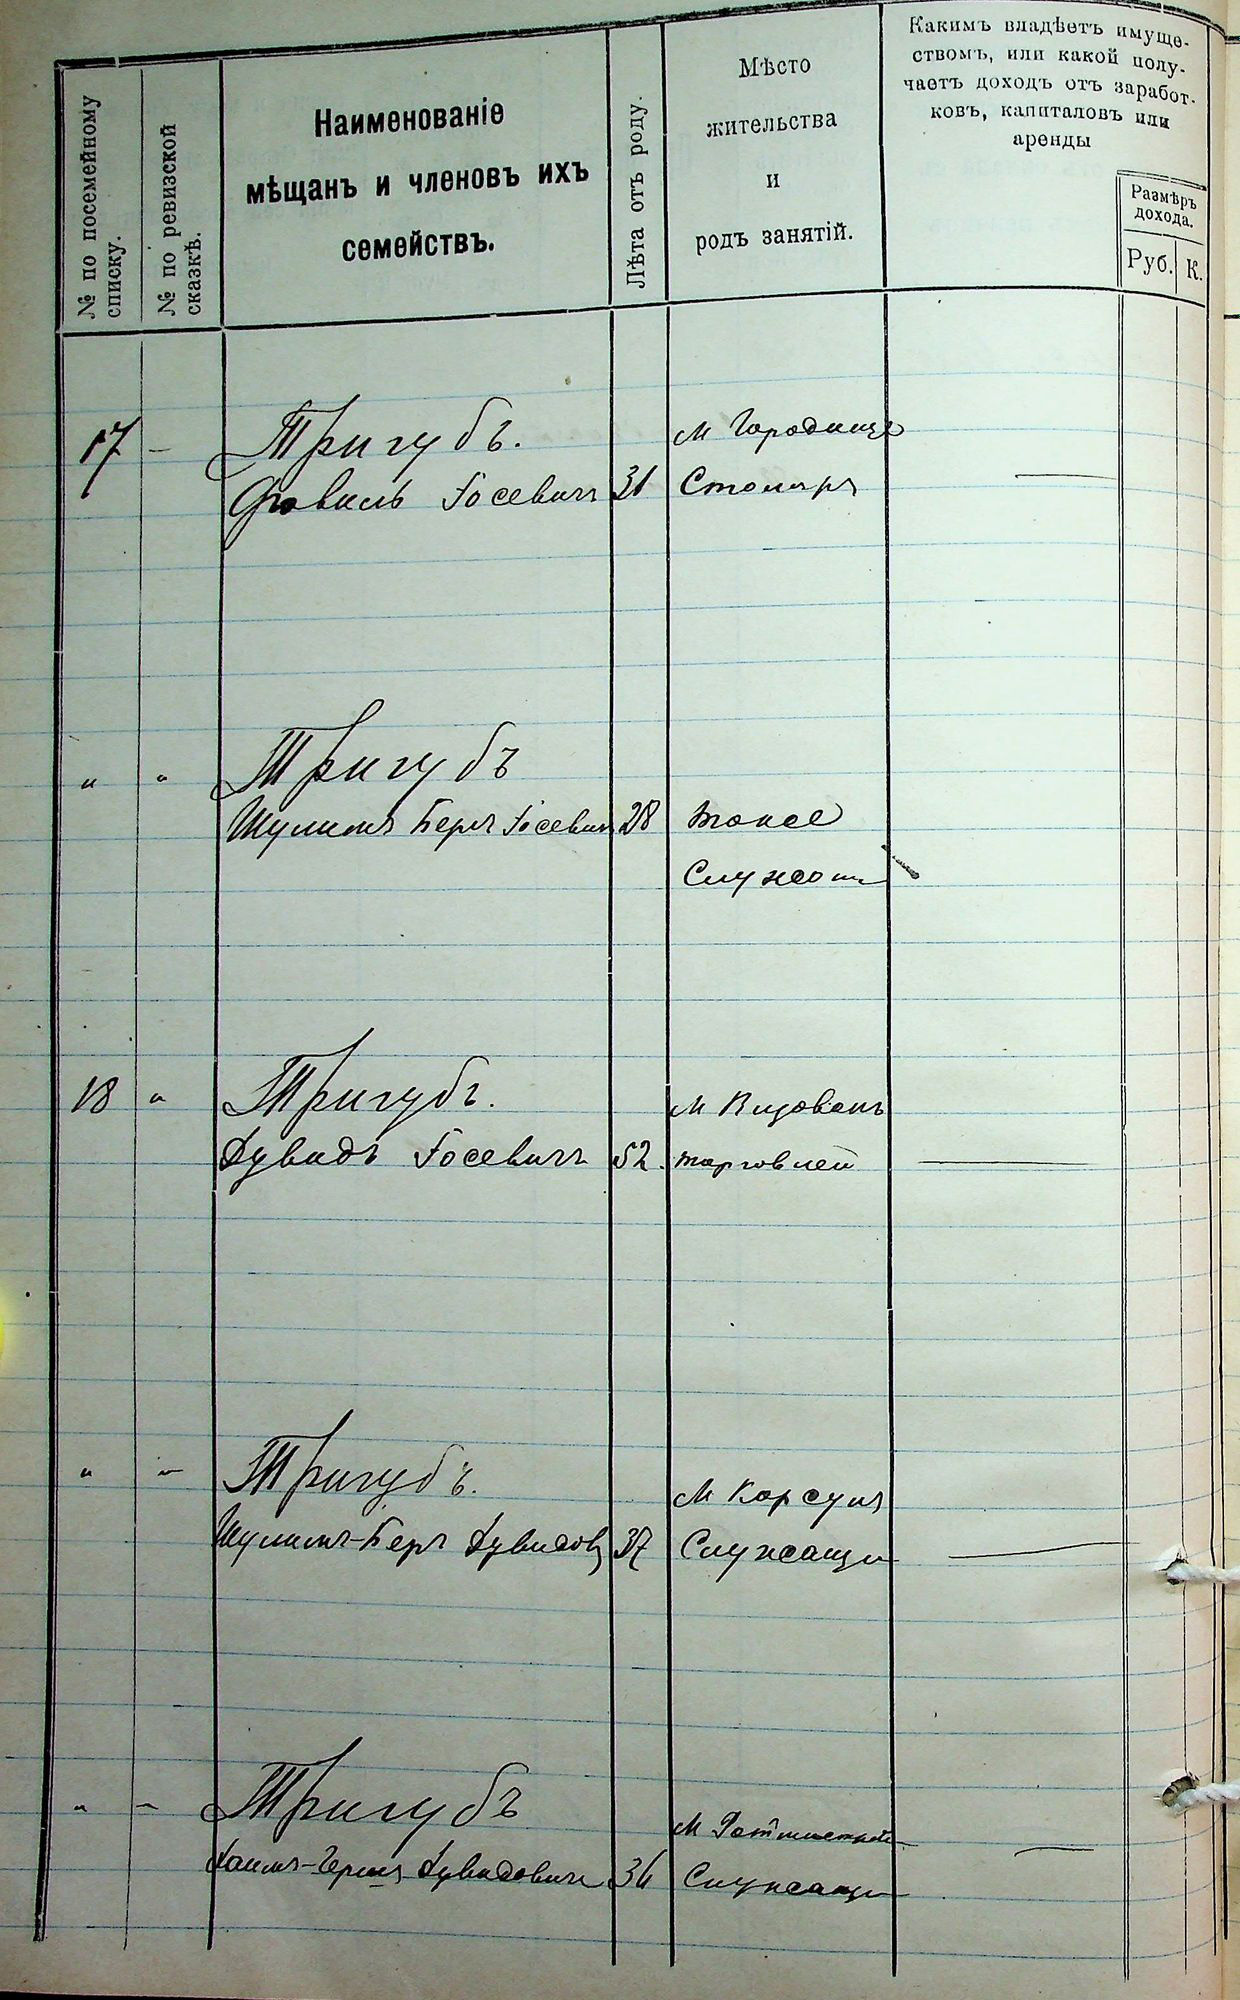 № по посемейному
списку.
№ по ревизской
сказкѣ.
Наименованіе
мѣщанъ и членовъ ихъ
семействъ.
Лѣта отъ роду.
Мѣсто
жительства
и
родъ занятій.
Какимъ владѣетъ имуще-
ствомъ, или какой полу-
чаетъ доходъ отъ заработ-
ковъ, капиталовъ или
аренды
Размѣръ
дохода.
Руб. К.
17 - Тригубъ. м Городище
Іосевичъ 31 Столяръ
" " Тригубъ
Шулимъ Беръ Іосевич 28 тоже
18 " Тригубъ. м
Дувидъ Іосевичъ 52. торговлей
" - Тригубъ. м Корсунь
Шулимъ-Беръ Дувидов 37 Служащи
" - Тригубъ м
Дувидовичъ 36 Служащи